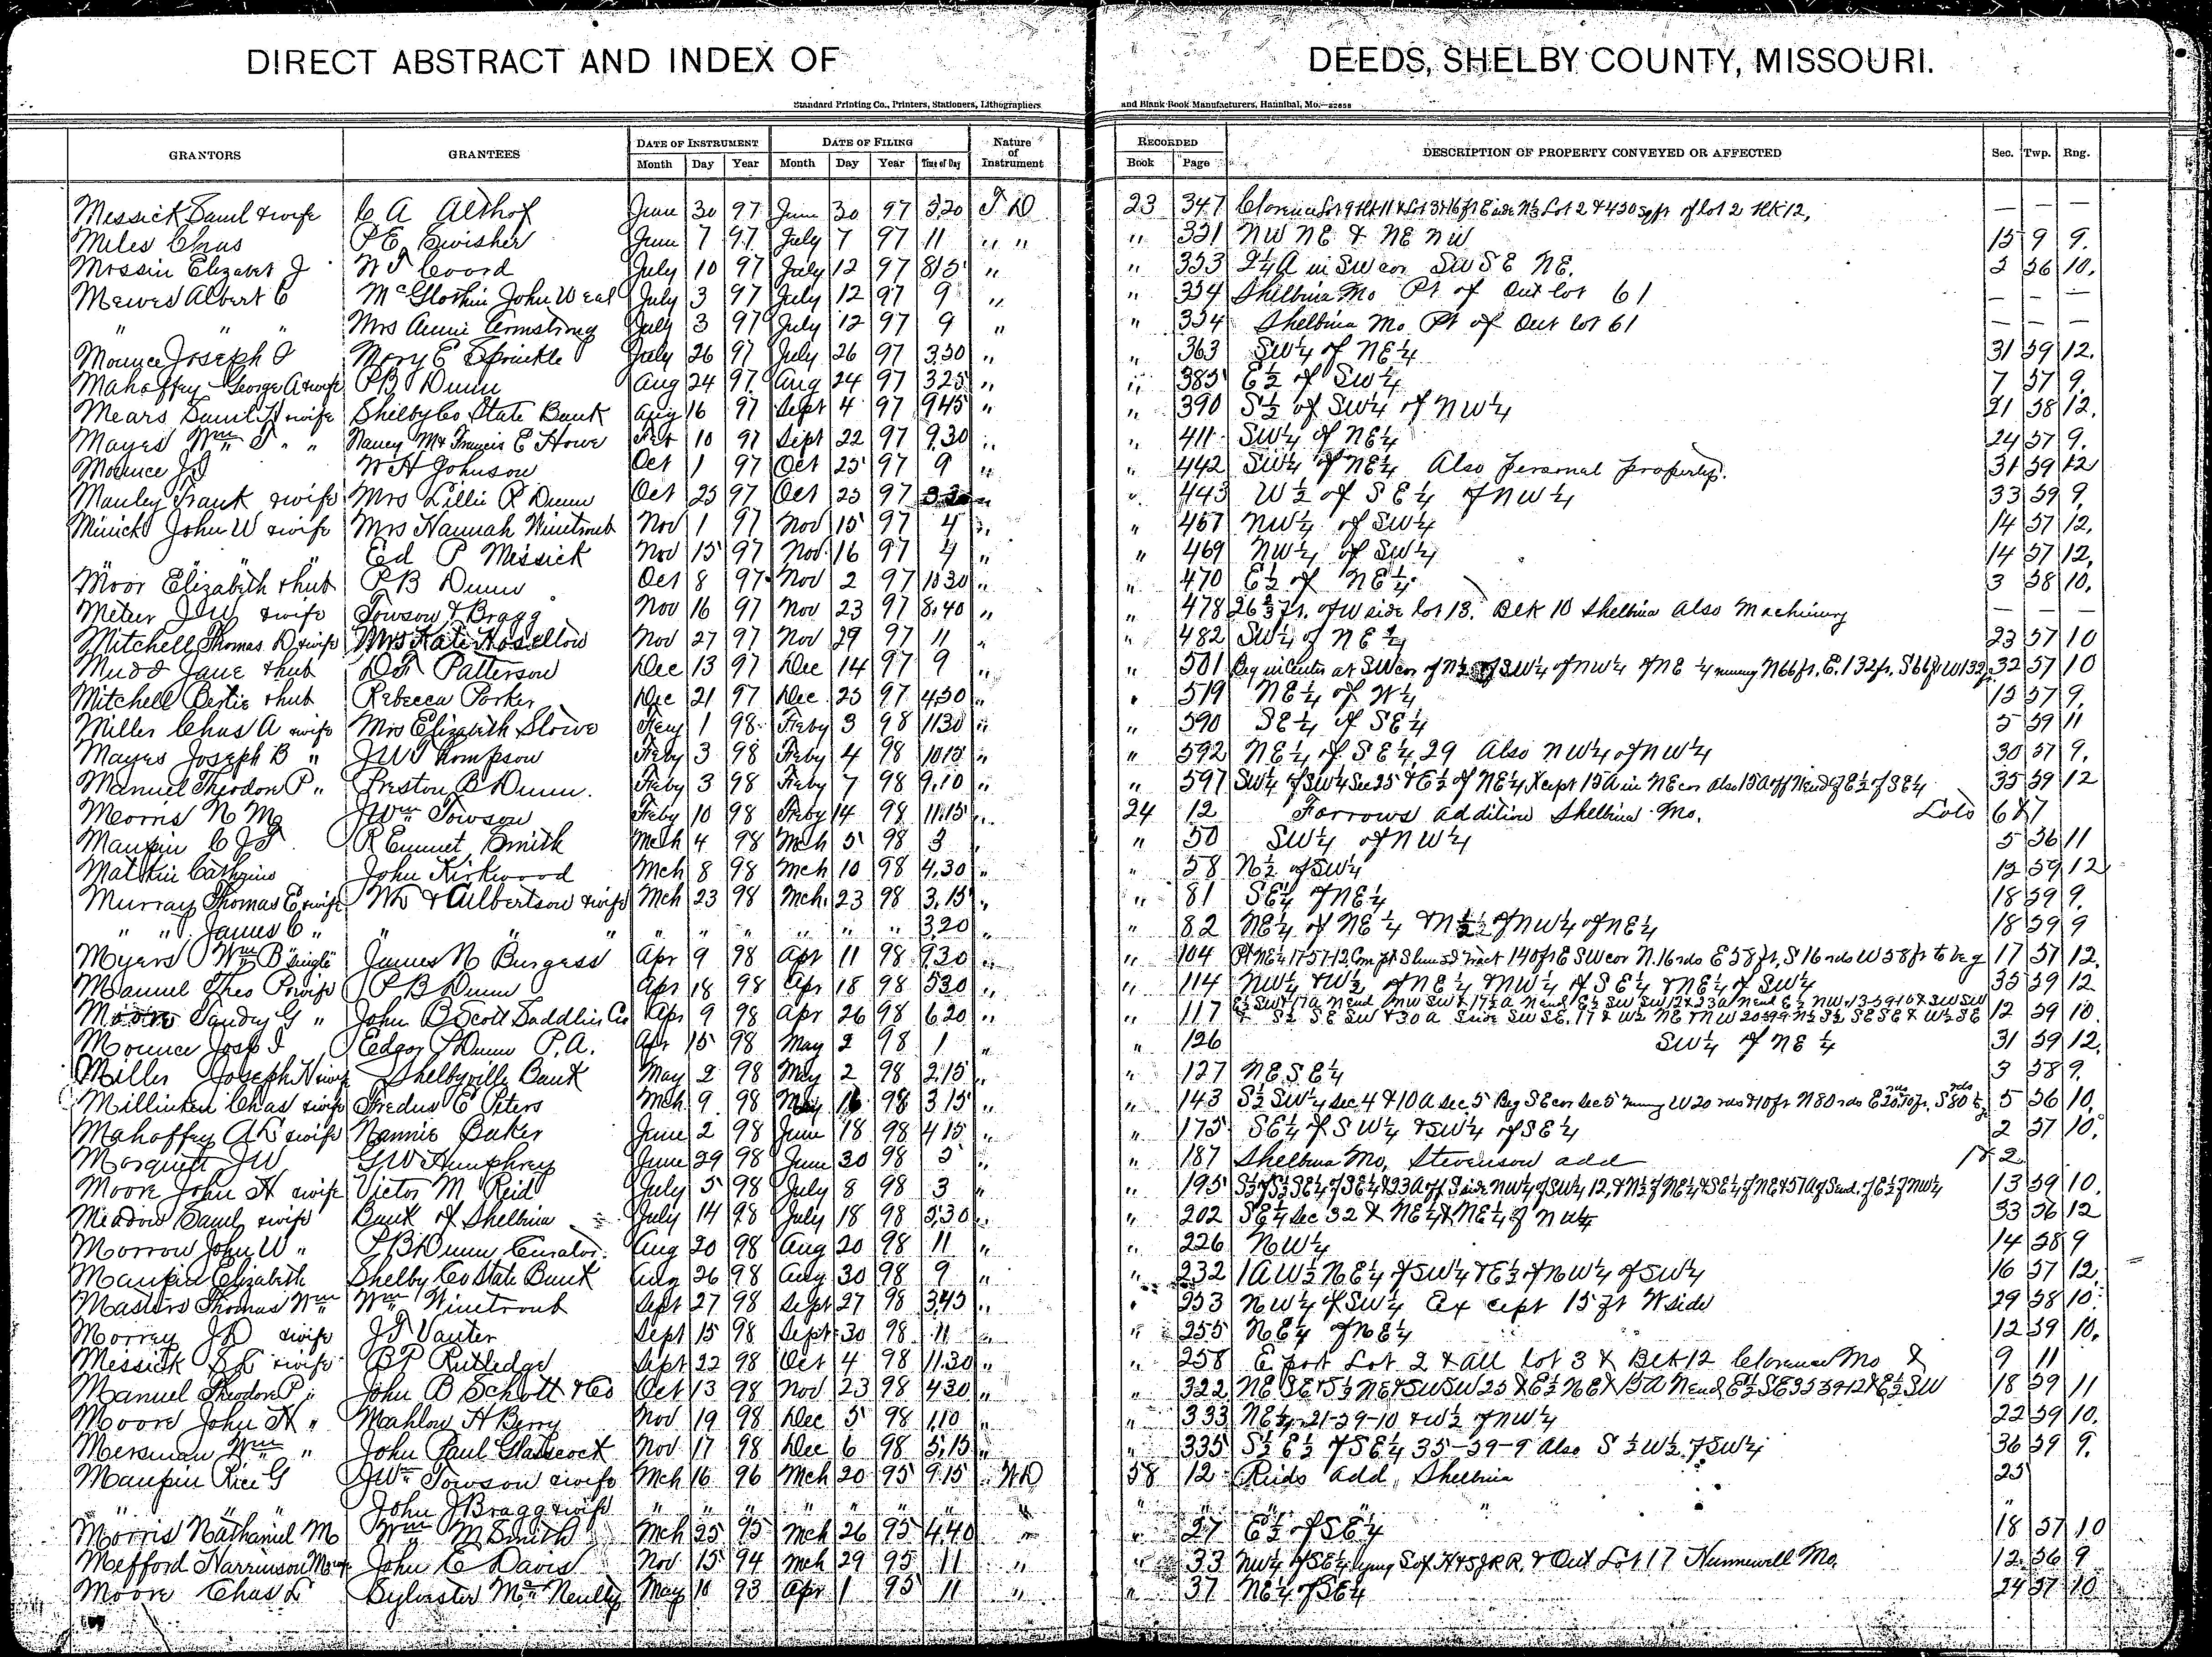 DIRECT ABSTRACT AND INDEX OF DEEDS, SHELBY COUNTY, MISSOURI.
Standard Printing Co., Printers, Stationers, Lithographers and Blank Book Manufacturers, Hannibal, Mo.—22658
GRANTORS GRANTEES DATE OF INSTRUMENT DATE OF FILING Nature of Instrument RECORDED DESCRIPTION OF PROPERTY CONVEYED OR AFFECTED Sec. Twp. Rng.
Month Day Year Month Day Year Time of Day Book Page
Messick Saml & wife C A Althof June 30 97 June 30 97 320 T D 23 347 Clarence Lot 9 Blk 11 & Lot 3 & 16 ft E side N⅓ Lot 2 & 450 sqft of lot 2 Blk 12, — — —
Miles Chas P E Swisher June 7 97 July 7 97 11 " " " 351 NW NE & NE NW 15 9 9.
Mossin Elizabet J W T Coord July 10 97 July 12 97 815 " " 353 2¼ A in SW cor SW SE NE. 2 56 10.
Mewes Albert C McGlothin John W eal July 3 97 July 12 97 9 " " 354 Shelbina Mo Pt of Out lot 61 — — —
" " " Mrs Annie Armstrong July 3 97 July 12 97 9 " " 354 Shelbina Mo Pt of Out lot 61 — — —
Mounce Joseph I Mary E Sprinkle July 26 97 July 26 97 3.50 " " 363 SW¼ of NE¼ 31 59 12.
Mahaffey George A & wife P B Dunn Aug 24 97 Aug 24 97 325 " " 385 E½ of SW¼ 7 57 9.
Mears Saml H & wife Shelby Co State Bank Aug 16 97 Sept 4 97 945 " " 390 S½ of SW¼ of NW¼ 21 58 12.
Mayes Wm T " " Nancy M & Francis E Howe Feb 10 97 Sept 22 97 9.30 " " 411 SW¼ of NE¼ 24 57 9.
Mounce J I W H Johnson Oct 1 97 Oct 25 97 9 " " 442 SW¼ of NE¼ Also personal property. 31 59 12
Manley Frank & wife Mrs Lillie R Dunn Oct 25 97 Oct 25 97 " " 443 W½ of SE¼ of NW¼ 33 59 9.
Minick John W & wife Mrs Hannah Winetroub Nov 1 97 Nov 15 97 4 " " 467 NW¼ of SW¼ 14 57 12.
" " " Ed P Messick Nov 15 97 Nov 16 97 4 " " 469 NW¼ of SW¼ 14 57 12.
Moor Elizabeth & hub P B Dunn Oct 8 97 Nov 2 97 1030 " " 470 E½ of NE¼ 3 58 10.
Meter J W & wife Towson & Bragg Nov 16 97 Nov 23 97 8.40 " " 478 26⅔ ft. of W side lot 13. Blk 10 Shelbina Also Machinery — — —
Mitchell Thomas D & wife Mrs Kate Nov 27 97 Nov 29 97 11 " " 482 SW¼ of NE¼ 23 57 10
Mudd Jane & hub D T Patterson Dec 13 97 Dec 14 97 9 " " 501 Beg in Center at SW cor of N½ of SW¼ of NW¼ of NE ¼ running N 66 ft. E. 132 ft, S 66 ft W 132 ft 32 57 10
Mitchell Bertie & hub Rebecca Parker Dec 21 97 Dec 25 97 430 " " 519 NE¼ of W¼ 15 57 9.
Miller Chas A & wife Mrs Elizabeth Stowe Feby 1 98 Feby 3 98 1130 " " 590 SE¼ of SE¼ 5 59 11
Mayes Joseph B " J W Thompson Feby 3 98 Feby 4 98 1015 " " 592 NE¼ of SE¼, 29 Also NW¼ of NW¼ 30 57 9.
Manuel Theodore P " Preston B Dunn. Feby 3 98 Feby 7 98 9.10 " " 597 SW¼ of SW¼ Sec 25 & E½ of NE¼ Xcept 15 A in NE cor also 15 A off N end of E½ of SE¼ 35 59 12
Morris N M J Wm Towson Feby 10 98 Feby 14 98 11.15 " 24 12 Farrows addition Shelbina Mo. Lots 6 & 7
Maupin C J T R Emmet Smith Mch 4 98 Mch 5 98 3 " " 50 SW¼ of NW¼ 5 56 11
Catherine John Kirkwood Mch 8 98 Mch 10 98 4.30 " " 58 N½ of SW¼ 12 59 12
Murray Thomas E & wife Culbertson & wife Mch 23 98 Mch. 23 98 3.15 " " 81 SE¼ of NE¼ 18 59 9.
" " James C " " " " " " " " " 3.20 " " 82 NE¼ of NE¼ & N½ of NW¼ of NE¼ 18 59 9
Myers Wm B single James N Burgess Apr 9 98 Apr 11 98 9.30 " " 104 Pt NE¼ 17 57 12 Com pt 140 ft E SW cor N. 16 rds E 58 ft, S 16 rds W 58 ft to beg 17 57 12.
Manuel Theo P & wife P B Dunn Apr 18 98 Apr 18 98 530 " " 114 NW¼ & W½ of NE¼ & NW¼ of SE¼ & NE¼ of SW¼ 35 59 12
Moore Sandy G " John B Scott Saddlin Co Apr 9 98 Apr 26 98 6.20 " " 117 12 59 10.
Mounce Jos I Edgar P Dunn P.A. Apr 15 98 May 2 98 1 " " 126 SW¼ of NE ¼ 31 59 12.
Miller Joseph H & wife Shelbyville Bank May 2 98 May 2 98 2.15 " " 127 NE SE¼ 3 58 9.
Milliken Chas & wife Fredus E Peters Mch 9 98 May 16 98 3 15 " " 143 S½ SW¼ Sec 4 & 10 A Sec 5 Beg SE cor Sec 5 running W 20 rds & 10 ft N 80 rds E 20 rds 10 ft. S 80 rds to bg 5 56 10.
Mahaffey A L & wife Nannie Baker June 2 98 June 18 98 4 15 " " 175 SE¼ of SW¼ & SW¼ of SE¼ 2 57 10.
Marquett J W G W Humphrey June 29 98 June 30 98 5 " " 187 Shelbina Mo, Stevenson add 1 & 2
Moore John H & wife Victor M Reid July 5 98 July 8 98 3 " " 195 S½ of S½ SE¼ of SE¼ & 23 A off S side NW¼ of SW¼ 12, & N½ of NE¼ & SE¼ of NE & 57 A of S end. of E½ of NW¼ 13 59 10.
Meadow Saml & wife Bank of Shelbina July 14 98 July 18 98 5.30 " " 202 SE¼ Sec 32 & NE¼ & NE¼ of NW¼ 33 56 12
Morrow John W " P B Dunn Curator. Aug 20 98 Aug 20 98 11 " " 226 NW¼ 14 58 9
Maupin Elizabeth Shelby Co State Bank Aug 26 98 Aug 30 98 9 " " 232 1 A W½ NE¼ of SW¼ & E½ of NW¼ of SW¼ 16 57 12.
Masters Thomas Wm Wm Winetroub Sept 27 98 Sept 27 98 3.45 " " 253 NW¼ of SW¼ Ex cept 15 ft W side 29 58 10.
Morrey J D & wife J T Vauter Sept 15 98 Sept 30 98 11 " " 255 NE¼ of NE¼ 12 59 10.
Messick S L & wife B P Rutledge Sept 22 98 Oct 4 98 11.30 " " 258 E part Lot 2 & all lot 3 & Blk 12 Clarence Mo & 9 11
Manuel Theodore P " John B Schott & Co Oct 13 98 Nov 23 98 4 30 " " 322 NE SE & S½ NE & SW SW 25 & E½ NE & 15 A N end E½ SE 35 59 12 & E½ SW 18 59 11
Moore John H " Mahlow H Berry Nov 19 98 Dec 5 98 1.10 " " 333 NE¼ 21-59-10 & W½ of NW¼ 22 59 10.
Mersman Wm " John Paul Glasscock Nov 17 98 Dec 6 98 5.15 " " 335 S½ E½ of SE¼ 35-59-9 Also S½ W½ of SW¼ 36 59 9.
Maupin Rice G J Wm Towson & wife Mch 16 96 Mch 20 95 9.15 W D 58 12 Reids add, Shelbina 25
" " " John J Bragg & wife " " " " " " " " " " "
Morris Nathaniel M Wm M Smith Mch 25 95 Mch 26 95 4.40 " " 27 E½ of SE¼ 18 57 10
Mefford Harrinson M & wife John C Davis Nov 15 94 Mch 29 95 11 " " 33 NW¼ of SE¼ lying S of H & St J R R. & Out Lot 17 Hunnewell Mo. 12 56 9
Moore Chas L Sylvester McNeilly May 10 93 Apr 1 95 11 " " 37 NE¼ of SE¼ 24 57 10